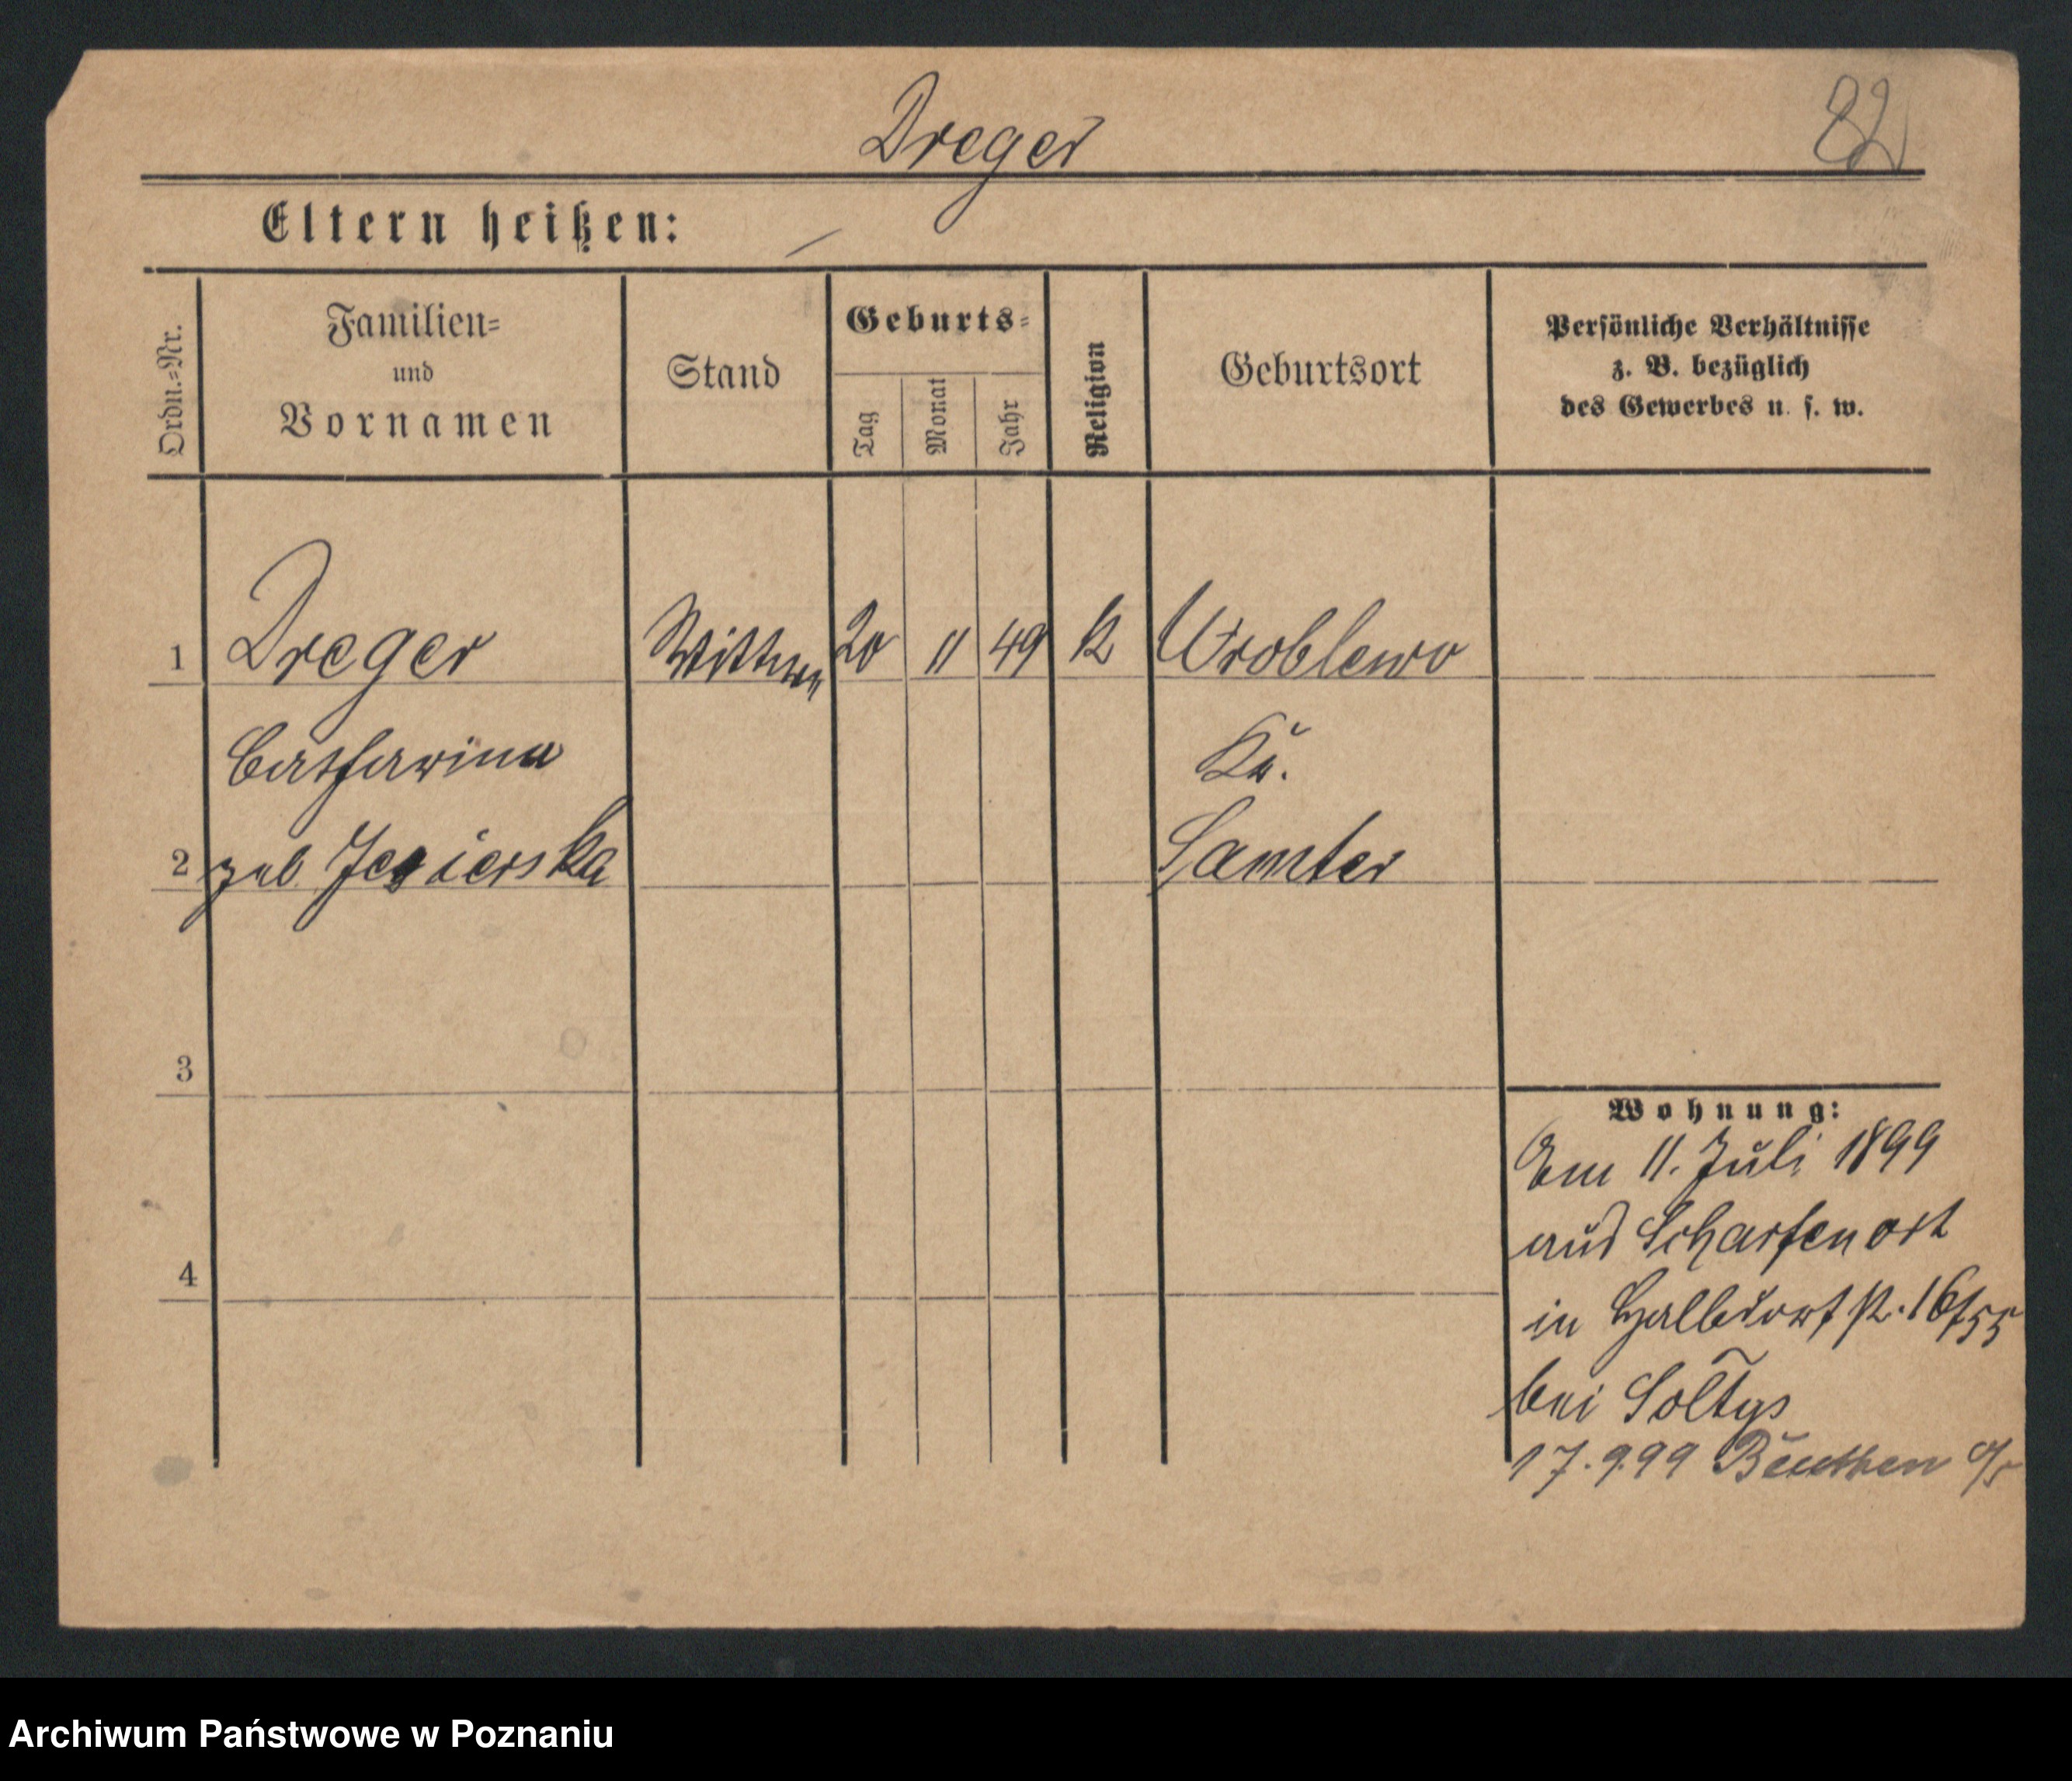 Dreger
Eltern heißen: —
Ordn.=Nr.
Familien=
und
Vornamen
Stand
Geburts=
Tag
Monat
Jahr
Religion
Geburtsort
Persönliche Verhältnisse
z. B. bezüglich
des Gewerbes u. s. w.
1 Dreger Wittwe 20 11 49 K Wroblewo
Catharina Kr.
2 geb. Jezierska Samter
3
4
Wohnung:
Am 11. Juli 1899
aus Scharfenort
in Halbdorfstr. 16/55
bei Soltys
17.9.99 Beuthen o/s
Archiwum Państwowe w Poznaniu